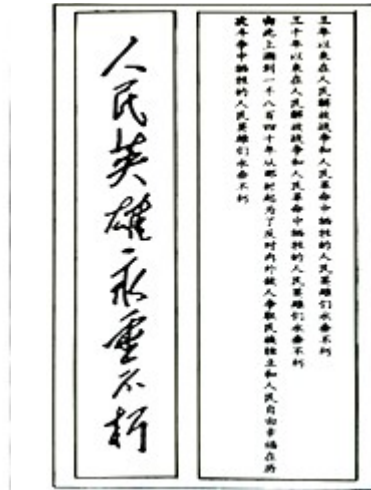 三年以来在人民解放战争和人民革命中牺牲的人民英雄们永垂不朽
三十年以来在人民解放战争和人民革命中牺牲的人民英雄们永垂不朽
由此上溯到一千八百四十年从那时起为了反对内外敌人争取民族独立和人民自由幸福在历
次斗争中牺牲的人民英雄们永垂不朽
人民英雄永垂不朽